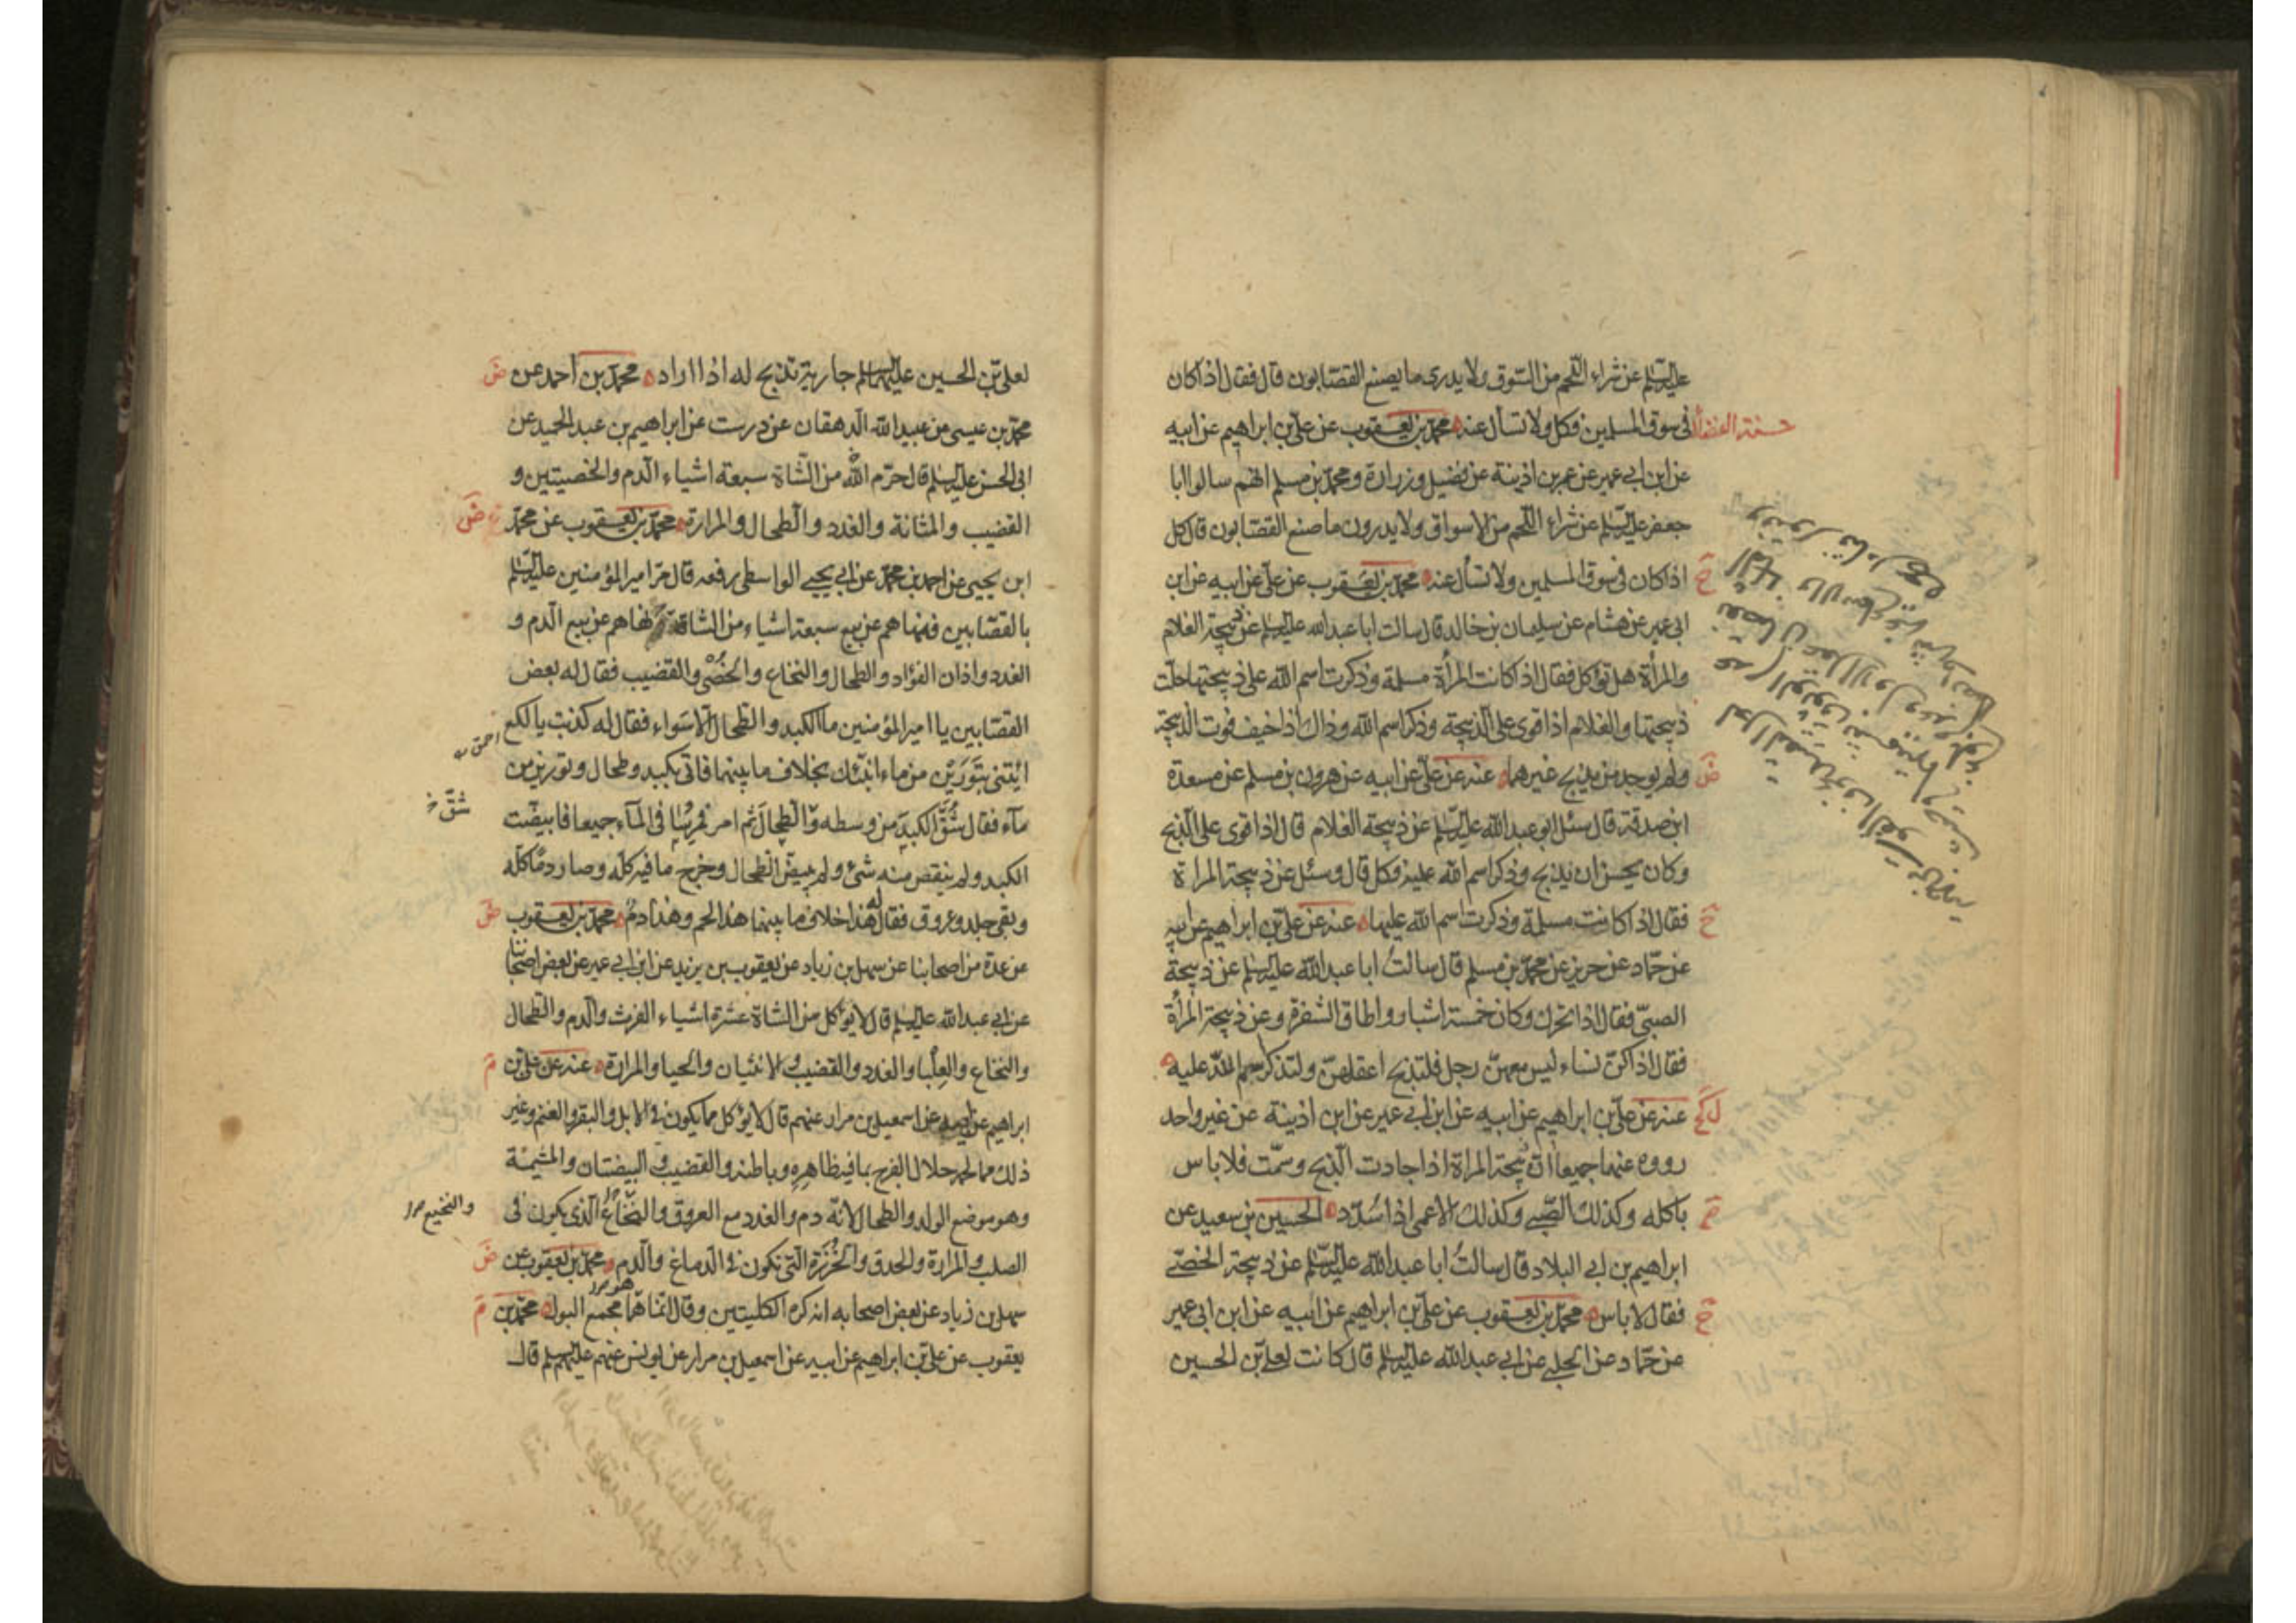 عليه السلم عن شراء اللحم من السوق ولا يدرى ما يصنع القصابون قال فقال اذا كان
فى سوق المسلمين فكل ولا تسأل عنه محمد بن يعقوب عن على بن ابراهيم عن ابيه
عن ابن ابي عمير عن عمر بن اذينة عن فضيل وزرارة ومحمد بن مسلم انهم سالوا ابا
جعفر عليه السلم عن شراء اللحم من الاسواق ولا يدرون ما صنع القصابون قال كل
ح اذا كان فى سوق المسلمين ولا تسأل عنه محمد بن يعقوب عن على عن ابيه عن ابن
ابى عمير عن هشام عن سليمان بن خالد قال سالت ابا عبد الله عليه السلم عن ذبيحة الغلام
والمرأة هل تؤكل فقال اذا كانت المرأة مسلمة وذكرت اسم الله على ذبيحتها حلت
ذبيحتها والغلام اذا قوى على الذبيحة وذكر اسم الله وذلك اذا خيف فوت الذبيحة
ض ولم يوجد من يذبح غيرهما عنه عن على عن ابيه عن هرون بن مسلم عن مسعدة
ابن صدقة قال سئل ابو عبد الله عليه السلم عن ذبيحة الغلام قال اذا قوى على الذبح
وكان يحسن ان يذبح وذكر اسم الله عليه فكل قال وسئل عن ذبيحة المراة
ح فقال اذا كانت مسلمة وذكرت اسم الله عليها عنه عن على بن ابراهيم عن ابيه
عن حماد عن حريز عن محمد بن مسلم قال سالت ابا عبد الله عليه السلم عن ذبيحة
الصبى فقال اذا تحرك وكان خمسة اشبار واطاق الشفرة وعن ذبيحة المرأة
فقال اذا كن نساء ليس معهن رجل فلتذبح اعقلهن ولتذكر اسم الله عليه
عنه عن على بن ابراهيم عن ابيه عن ابن ابي عمير عن ابن اذينة عن غير واحد
رووه عنهما جميعا ان ذبيحة المراة اذا اجادت الذبح وسمت فلا باس
باكله وكذلك الصبى وكذلك الاعمى اذا سدد الحسين بن سعيد عن
ابراهيم بن ابي البلاد قال سالت ابا عبد الله عليه السلم عن ذبيحة الخصى
ح فقال لا باس محمد بن يعقوب عن على بن ابراهيم عن ابيه عن ابن ابى عمير
عن حماد عن الحلبي عن ابي عبد الله عليه السلم قال كانت لعلى بن الحسين
لعلى بن الحسين عليهما السلم جارية تذبح له اذا اراد محمد بن احمد عن ض
محمد بن عيسى عن عبيد الله الدهقان عن درست عن ابراهيم بن عبد الحميد عن
ابى الحسن عليه السلم قال حرم الله من الشاة سبعة اشياء الدم والخصيتين و
القضيب والمثانة والغدد والطحال والمرارة محمد بن يعقوب عن محمد ض
ابن يحيى عن احمد بن محمد عن ابي يحيى الواسطى رفعه قال مر امير المؤمنين عليه السلم
بالقصابين فنهاهم عن بيع سبعة اشياء من الشاة نهاهم عن بيع الدم و
الغدد واذان الفؤاد والطحال والنخاع والخصى والقضيب فقال له بعض
القصابين يا امير المؤمنين ما الكبد والطحال الا سواء فقال له كذبت يا لكع
احمق
ائتنى بتورين من ماء انبئك بخلاف ما بينهما فاتى بكبد وطحال وتورين من
ماء فقال شقوا الكبد من وسطه والطحال من وسطه ثم امر فمرسا فى الماء جميعا فابيضت
شق خ
الكبد ولم ينقص منه شئ ولم يبيض الطحال وخرج ما فيه كله وصار دما كله
وبقى جلد وعروق فقال له هذا خلاف ما بينهما هذا لحم وهذا دم محمد بن يعقوب ض
عن عدة من اصحابنا عن سهل بن زياد عن يعقوب بن يزيد عن ابن ابي عمير عن بعض اصحابنا
عن ابي عبد الله عليه السلم قال لا يؤكل من الشاة عشرة اشياء الفرث والدم والطحال
والنخاع والعلبا والغدد والقضيب والانثيان والحيا والمرارة عنه عن على بن م
ابراهيم عن ابيه عن اسمعيل بن مرار عنهم قال لا يؤكل مما يكون فى الابل والبقر والغنم وغير
ذلك مما لحمه حلال الفرج بما فيه ظاهره وباطنه والقضيب والبيضتان والمشيمة
وهو موضع الولد والطحال لانه دم والغدد مع العروق والنخاع الذى يكون فى
والنخيع
الصلب والمرارة والحدق والخرزة التى تكون فى الدماغ والدم محمد بن يعقوب عن ض
سهل بن زياد عن بعض اصحابه انه كره الكليتين وقال انما هما مجمع البول محمد بن م
يعقوب عن على بن ابراهيم عن ابيه عن اسمعيل بن مرار عن يونس عنهم عليهم السلم قال